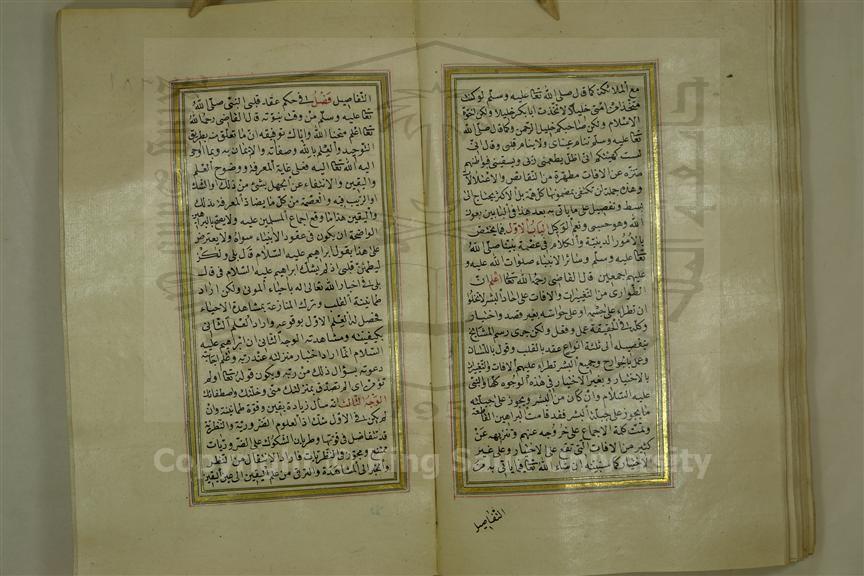 مع الملائكة كما قال صلى الله تعالى عليه وسلم لو كنت
متخذا من امتى خليلا لاتخذت ابابكر خليلا ولكن اخوة
الاسلام ولكن صاحبكم خليل الرحمن وكما قال صلى الله
تعالى عليه وسلم تنام عيناى ولاينام قلبى وقال انى
لست كهيئتكم انى اظل يطعمنى ربى ويسقينى فبواطنهم
منزهة عن الافات مطهرة من النقائص والاعتلالات
وهذه جملة لن يكتفى بمضمونها كل ذى همة بل الاكثر يحتاج الى
بسط وتفصيل على ما ياتى به بعد هذا فى البابين بعون
الله وهو حسبى ونعم الوكيل الباب الاول فيما يختص
بالامور الدينية والكلام فى عصمة نبينا صلى الله
تعالى عليه وسلم وسائر الانبياء صلوات الله عليه و
عليهم اجمعين قال القاضى رحمه الله تعالى اعلم ان
الطوارى من التغيرات والافات على احاد البشر لا يخلو
ان تطرأ على جسمه او على حواسه بغير قصد واختيار
وكله فى الحقيقة عمل وفعل ولكن جرى رسم المشايخ
بتفصيله الى ثلثة انواع عقد بالقلب وقول باللسان
وعمل بالجوارح وجميع البشر تطرأ عليهم الافات والتغيرات
بالاختيار وبغير الاختيار فى هذه الوجوه كلها والنبى
عليه السلام وان كان من البشر ويجوز على جبلته
ما يجوز على جبلة البشر فقد قامت البراهين القاطعة
وتمت كلمة الاجماع على خروجه عنهم وتنزيهه عن
كثير من الافات التى تقع على الاختيار وعلى غير
الاختيار كما سنبينه ان شاء الله تعالى فيما ياتى به من
التفاصيل
التفاصيل فصل فى حكم عقد قلب النبى صلى الله
تعالى عليه وسلم من وقت نبوته قال القاضى رحمه الله
تعالى اعلم منحنا الله واياك توفيقه ان ما تعلق منه بطريق
التوحيد والعلم بالله وصفاته والايمان به وبما اوحى
اليه الله تعالى اليه فعلى غاية المعرفة ووضوح العلم
واليقين والانتفاء عن الجهل بشئ من ذلك او الشك
او الريب فيه والعصمة من كل ما يضاد المعرفة بذلك
واليقين هذا ما وقع اجماع المسلمين عليه ولا يصح بالبراهين
الواضحة ان يكون فى عقود الانبياء سواه ولا يعترض
على هذا بقول ابراهيم عليه السلام قال بلى ولكن
ليطمئن قلبى اذ لم يشك ابراهيم عليه السلام فى
فى اخبار الله تعالى له باحياء الموتى ولكن اراد
طمانينة القلب وترك المنازعة بمشاهدة الاحياء
فحصل له العلم الاول بوقوعه واراد العلم الثانى
بكيفيته ومشاهدته الوجه الثانى ان ابراهيم عليه
السلام انما اراد اختبار منزلته عند ربه وعلم اجابته
دعوته بسؤال ذلك من ربه ويكون قوله تعالى اولم
تؤمن اى الم تصدق بمنزلتك منى وخلتك واصطفائك
الوجه الثالث انه سأل زيادة يقين وقوة طمانينة وان
لم يكن فى الاول شك اذ العلوم الضرورية والنظرية
قد تتفاضل فى قوتها وطريان الشكوك على الضروريات
ممتنع ومجوز فى النظريات فاراد الانتقال من النظر
والخبر الى المشاهدة والترقى من علم اليقين الى عين اليقين